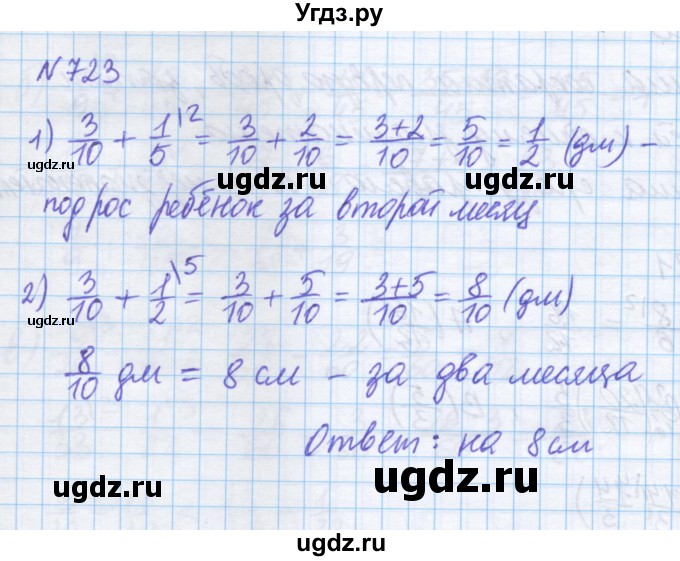 Угдз.ру
№723
1) 3/10 + 1/5 \2 = 3/10 + 2/10 = 3+2/10 = 5/10 = 1/2 (дм) –
ugdz.ru ugdz.ru ugdz.ru ugdz.ru
подрос ребёнок за второй месяц
2) 3/10 + 1/2 \5 = 3/10 + 5/10 = 3+5/10 = 8/10 (дм)
ugdz.ru ugdz.ru ugdz.ru ugdz.ru
8/10 дм = 8 см – за два месяца
Ответ: на 8 см
ugdz.ru ugdz.ru
ugdz.ru